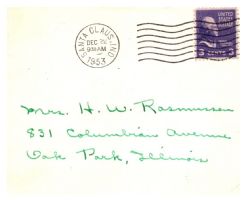 SANTA CLAUS, IND.
DEC 22
9:30 AM
1953
UNITED
STATES
POSTAGE
Mrs. H. W. Rasmussen
831 Columbian Avenue
Oak Park, Illinois